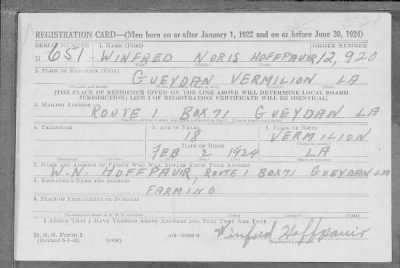 REGISTRATION CARD—(Men born on or after January 1, 1922 and on or before June 30, 1924)
SERIAL NUMBER 1. NAME (Print) ORDER NUMBER
N 651 WINFRED NORIS HOFFPAUR 12,920
2. PLACE OF RESIDENCE (Print)
GUEYDAN VERMILION LA
(THE PLACE OF RESIDENCE GIVEN ON THE LINE ABOVE WILL DETERMINE LOCAL BOARD
JURISDICTION; LINE 2 OF REGISTRATION CERTIFICATE WILL BE IDENTICAL)
3. MAILING ADDRESS
ROUTE 1 BOX 71 GUEYDAN LA
4. TELEPHONE 5. AGE IN YEARS 6. PLACE OF BIRTH
18 VERMILION
DATE OF BIRTH
FEB 2 1924 LA
7. NAME AND ADDRESS OF PERSON WHO WILL ALWAYS KNOW YOUR ADDRESS
W.N. HOFFPAUR, ROUTE 1 BOX 71 GUEYDAN LA
8. EMPLOYER'S NAME AND ADDRESS
FARMING
9. PLACE OF EMPLOYMENT OR BUSINESS
I AFFIRM THAT I HAVE VERIFIED ABOVE ANSWERS AND THAT THEY ARE TRUE.
D. S. S. FORM 1
(Revised 6-1-42) (over)
Winfred Hoffpauir